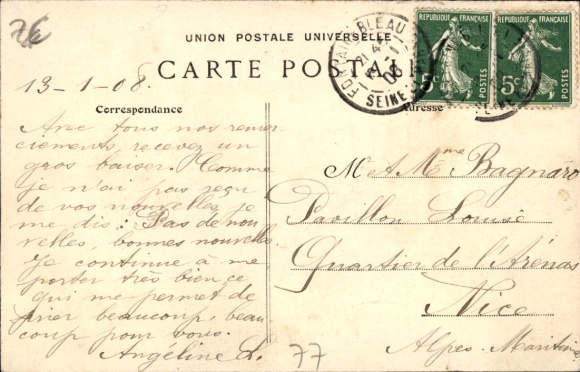 7€
UNION POSTALE UNIVERSELLE
CARTE POSTALE
FONTAINEBLEAU
SEINE
08
REPUBLIQUE FRANÇAISE
5c
POSTES
REPUBLIQUE FRANÇAISE
5c
POSTES
SEINE
13-1-08.
Correspondance
Avec tous nos remer-
ciements, recevez un
gros baiser. Comme
je n'ai pas reçu
de vos nouvelles, je
me dis: Pas de nou-
velles, bonnes nouvelles.
Je continue à me
porter très bien, ce
qui me permet de
prier beaucoup, beau-
coup pour vous.
Angéline A.
Adresse
Mr & Mme Bagnaro
Pavillon Louise
Quartier de l'Arénas
Nice
Alpes-Maritimes
77